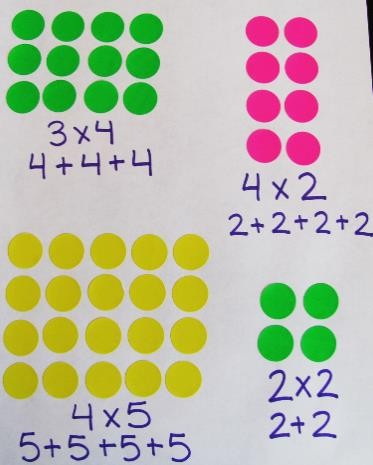 3×4
4+4+4
4×2
2+2+2+2
4×5
5+5+5+5
2×2
2+2